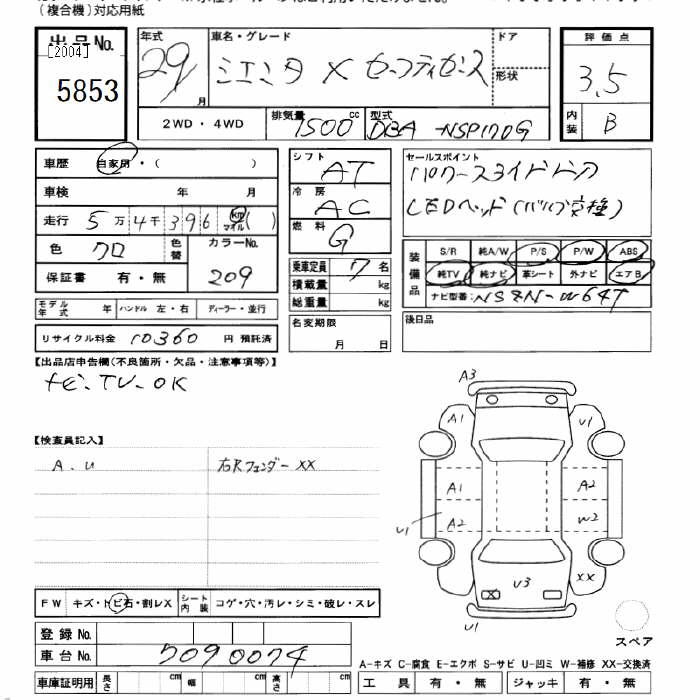 （複合機）対応用紙
出品No.
[2004]
5853
年式
29
月
車名・グレード
シエンタ X セーフティセンス
ドア
形状
評価点
3.5
内装
B
2WD ・ 4WD
排気量
1500
cc
型式
DBA-NSP170G
車歴
自家用・（ ）
車検 年 月
走行 5万4千396 km マイル ( )
色
クロ
色替
カラーNo.
209
保証書 有・無
モデル年式 年
ハンドル 左・右
ディーラー・並行
リサイクル料金 10360 円 預託済
シフト
AT
冷房
AC
燃料
G
乗車定員 7 名
積載量 kg
総重量 kg
名変期限
月 日
セールスポイント
パワースライドドア
LEDヘッド(バルブ交種)
装備品
S/R 純A/W P/S P/W ABS
純TV 純ナビ 革シート 外ナビ エアB
ナビ型番：NSZN-W64T
後日品
【出品店申告欄（不良箇所・欠品・注意事項等）】
ナビ・TV-OK
【検査員記入】
A.U
右Rフェンダー XX
A3
A1
U1
A1
A2
A2
W2
U1
U3
XX
U1
スペア
FW キズ・トビ石・割レX
シート内装 コゲ・穴・汚レ・シミ・破レ・スレ
登録No.
車台No. 7090074
車庫証明用 長さ cm 幅 cm 高さ cm
A-キズ C-腐食 E-エクボ S-サビ U-凹ミ W-補修 XX-交換済
工具 有・無 ジャッキ 有・無